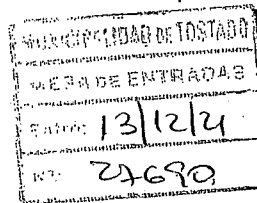 MUNICIPALIDAD DE TOSTADO
MESA DE ENTRADAS
Entró: 13/12/21
Nº: 27690